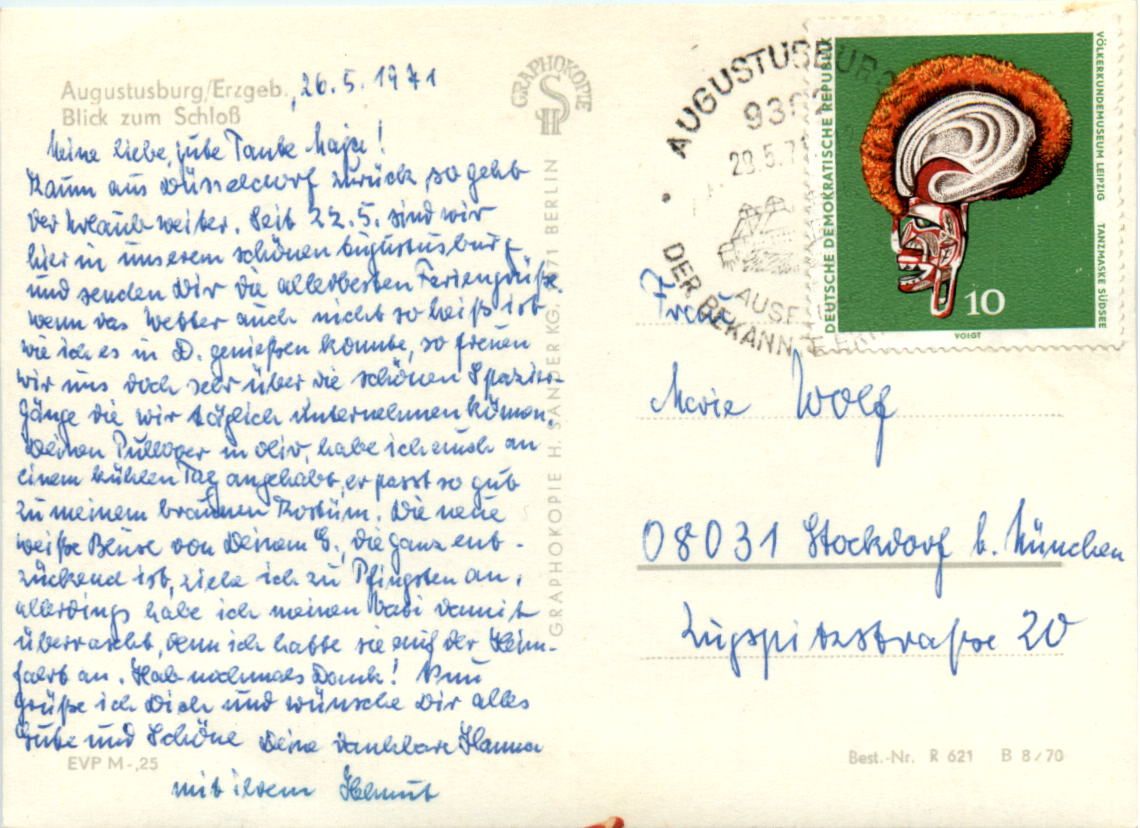 Augustusburg/Erzgeb. , 26.5.1971
Blick zum Schloß
Meine liebe, gute Tante
Kaum aus Düsseldorf zurück, so geht
der Urlaub weiter. Seit 22.5. sind wir
hier in unserem schönen Augustusburg
und senden Dir die allerbesten Feriengrüße.
Wenn das Wetter auch nicht so heiß ist
wie ich es in D. genießen konnte, so freuen
wir uns doch sehr über die schönen Spazier-
gänge die wir täglich unternehmen können.
Deinen Pullover in oliv, habe ich auch an
einem kühlen Tag angehabt, er passt so gut
zu meinem braunen Kostüm. Die neue
weiße Bluse von Deinem G., die ganz ent-
zückend ist, ziehe ich zu Pfingsten an,
allerdings habe ich meinen damit
überrascht, denn ich hatte sie auf der Heim-
fahrt an. Hab nochmals Dank! Nun
grüße ich Dich und wünsche Dir alles
Gute und Schöne Deine dankbare Hanna
mit ihrem Helmut
EVP M -,25
GRAPHOKOPIE
HS
GRAPHOKOPIE H. SANDER KG, 1071 BERLIN
AUGUSTUSBURG
29.5.71
DER BEKANNTE
DEUTSCHE DEMOKRATISCHE REPUBLIK
VÖLKERKUNDEMUSEUM LEIPZIG TANZMASKE SÜDSEE
10
VOIGT
Frau
Marie Wolf
08031 Stockdorf b. München
Zugspitzstraße 20
Best.-Nr. R 621 B 8/70